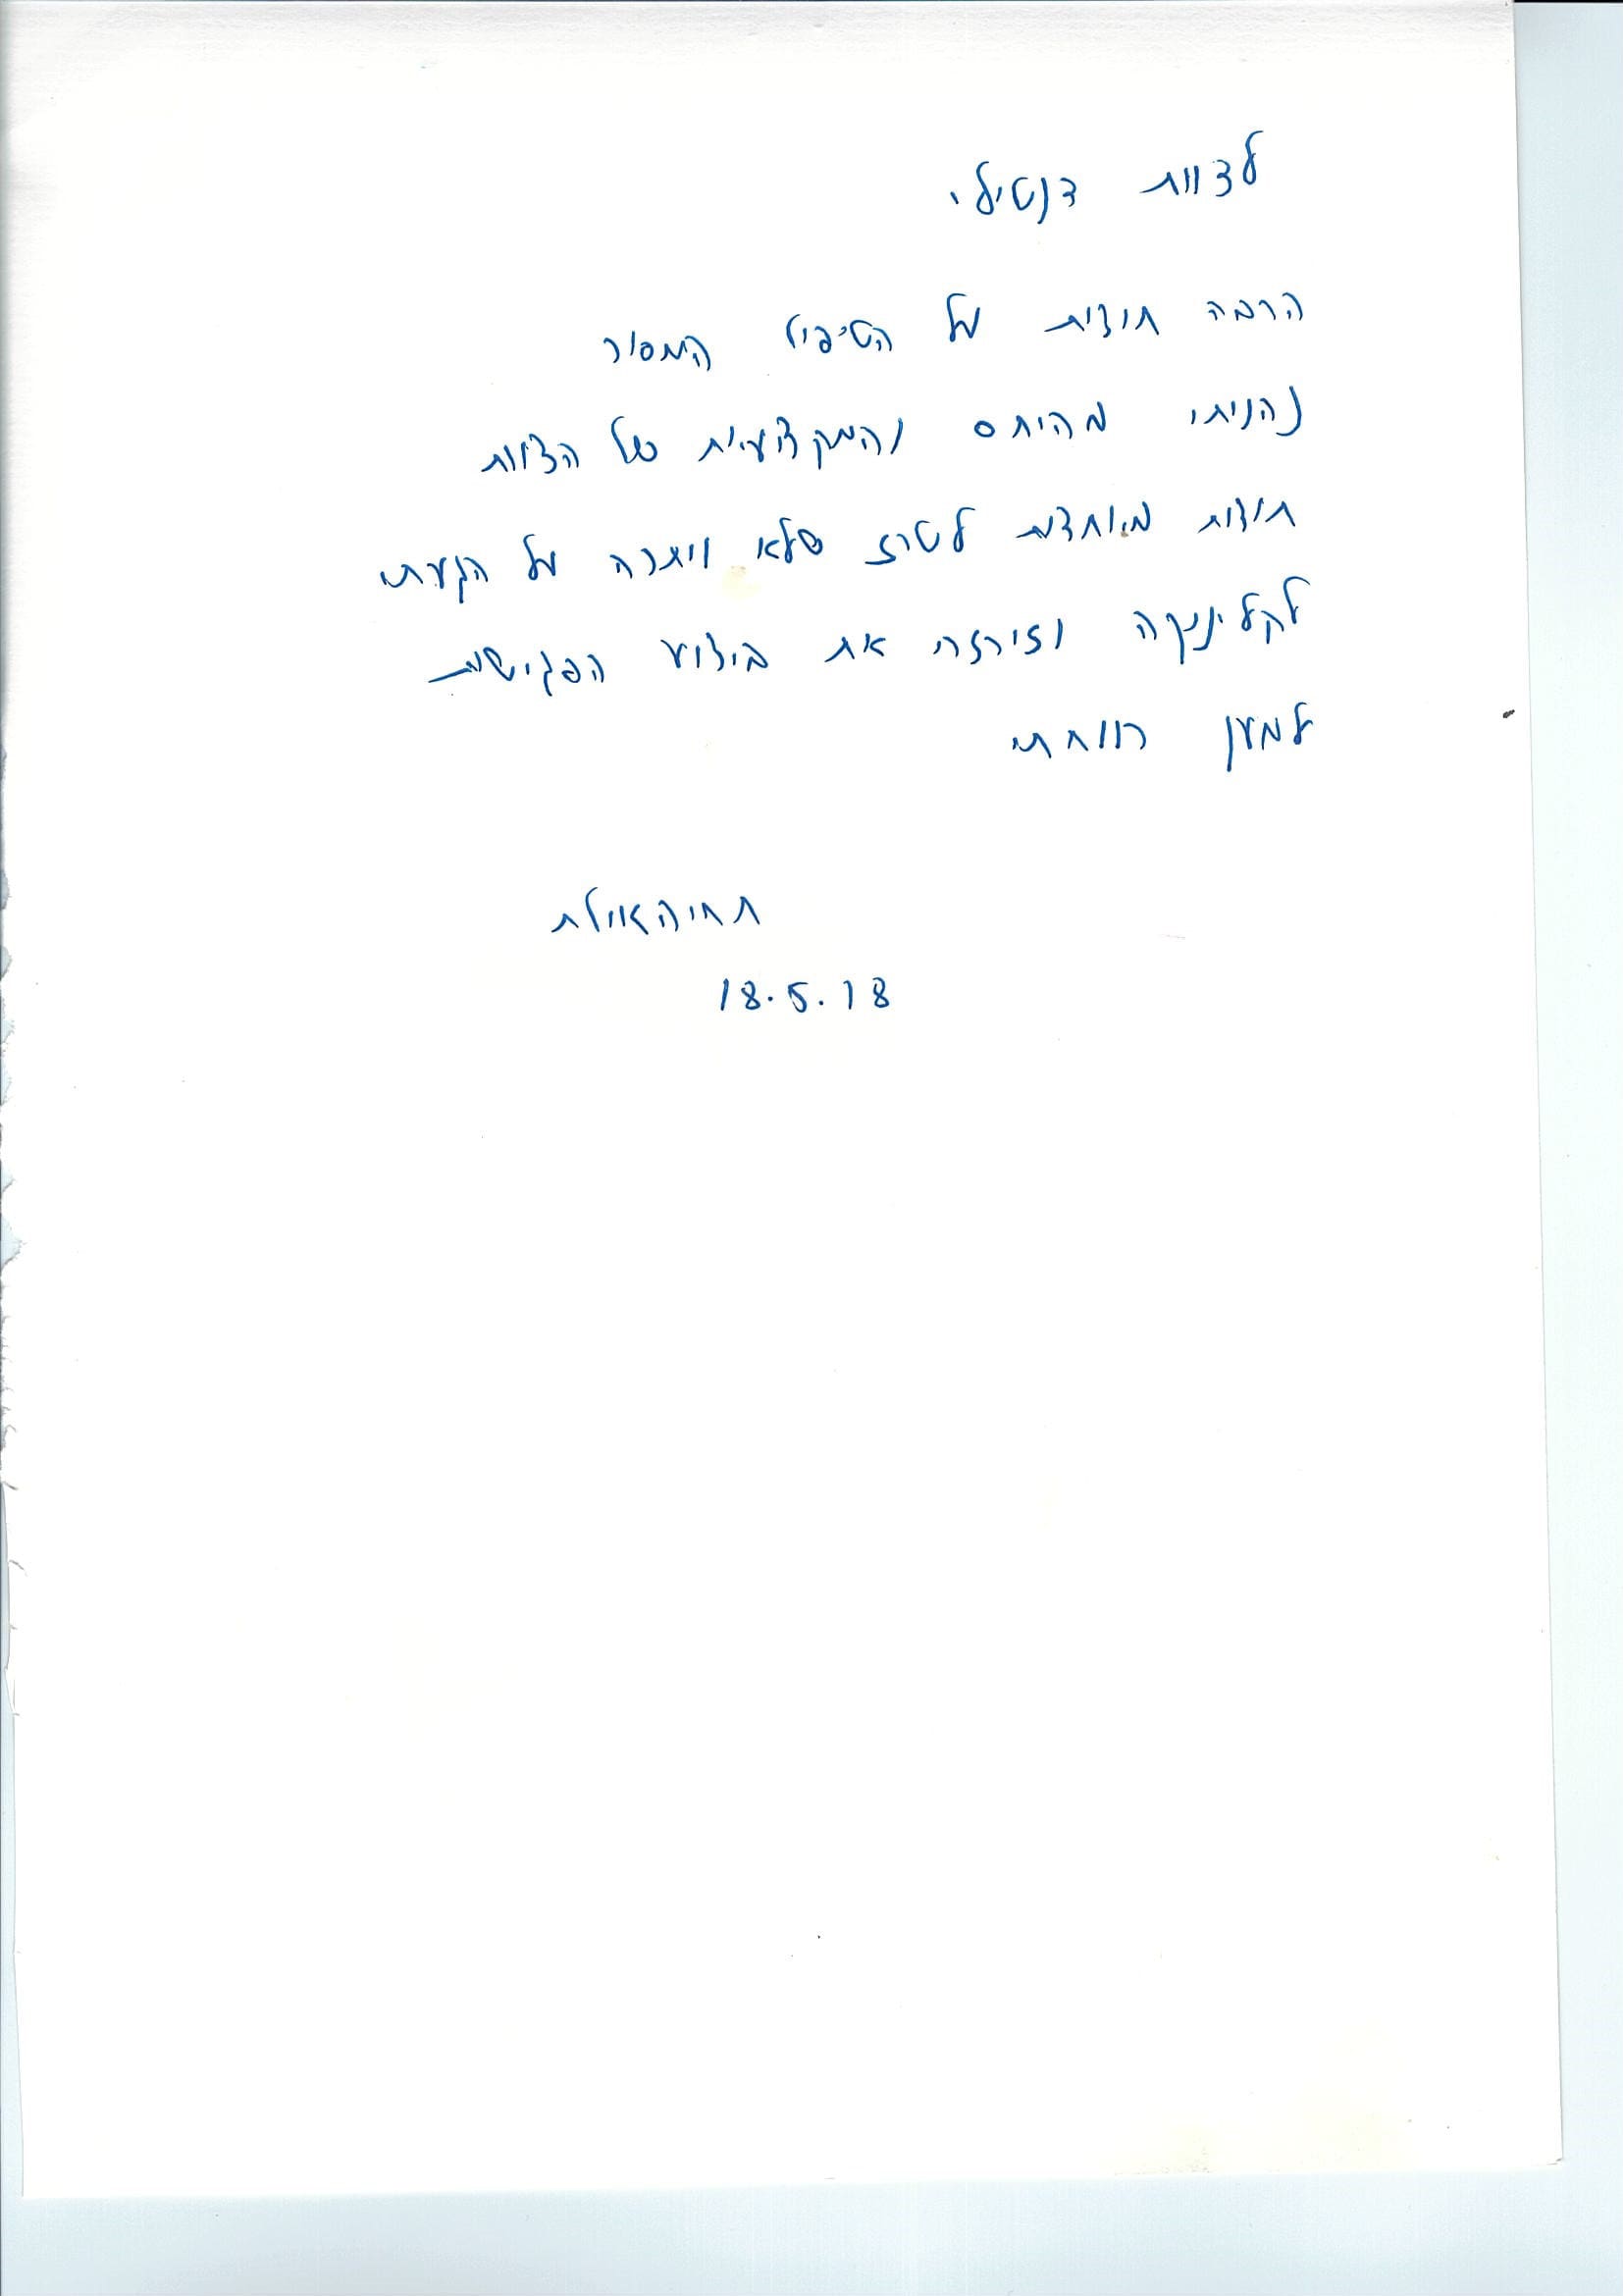 לצוות דנטילי
הרבה תודות על הטיפול המסור
נהניתי מהיחס והמקצועיות של הצוות
תודות מיוחדות לשרז שלא ויתרה על הגעתי
לקליניקה וזירזה את ביצוע הפגישות
למען רווחתי
תחיה אילת
18.5.18